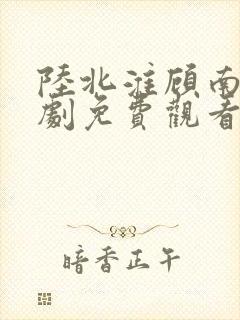 陸北淮顧南
劇免費觀看
暗香正午